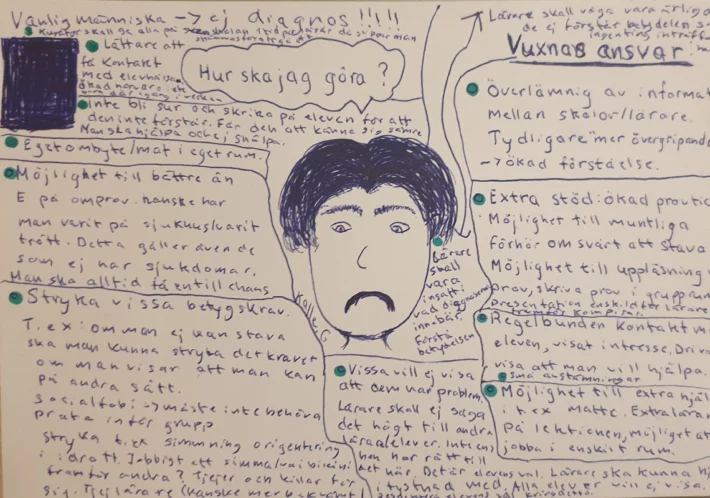 Vanlig människa -> ej diagnos!!!!!
Lättare att
få kontakt
med elevhälsan
ökad närvaro
Inte bli sur och skrika på eleven för att
den inte förstår. Får den att känna sig sämre
Man ska hjälpa och ej stjälpa.
Eget ombyte/mat i eget rum.
Möjlighet till bättre än
E på omprov. kanske har
man varit på sjukhus/varit
trött. Detta gäller även de
som ej har sjukdomar.
Man ska alltid få en till chans
Stryka vissa betygskrav.
T.ex: om man ej kan stava
ska man kunna stryka det kravet
om man visar att man kan
på andra sätt.
socialfobi -> måste inte behöva
prata inför grupp
stryka t.ex simmning orientering
i idrott. Jobbigt att simma/va i bikini
framför andra? Tjejer och killar för
sig. Tjejlärare (kanske mer bekvämt)
Hur ska jag göra?
Kalle G
Lärare
skall
vara
insatt i
vad diagnoserna
innebär.
Förstå
betydelsen
Vissa vill ej visa
att dem har problem.
Lärare skall ej säga
det högt till andra
lärare/elever.
hen har rätt till
det här. Det är elevens val. Lärare ska kunna hj
i tystnad med. Alla elever vill ej visa.
Lärare skall våga vara ärliga
de ej förstår betydelsen
ingenting inträffa
Vuxnas ansvar:
Överlämnig av informat
mellan skolor/lärare.
Tydligare "mer övergripande
-> ökad förståelse.
Extra stöd: ökad provtid
Möjlighet till muntliga
förhör om svårt att stava
Möjlighet till uppläsning
prov, skriva prov i grupprum
presentation enskild för lärare
framför kompisar.
Regelbunden kontakt m
eleven, visat intresse. Driv
visa att man vill hjälpa.
små avstämningar
Möjlighet till extra hjäl
i t.ex matte. Extralärar
på lektionen, möjliget at
jobba i enskilt rum.